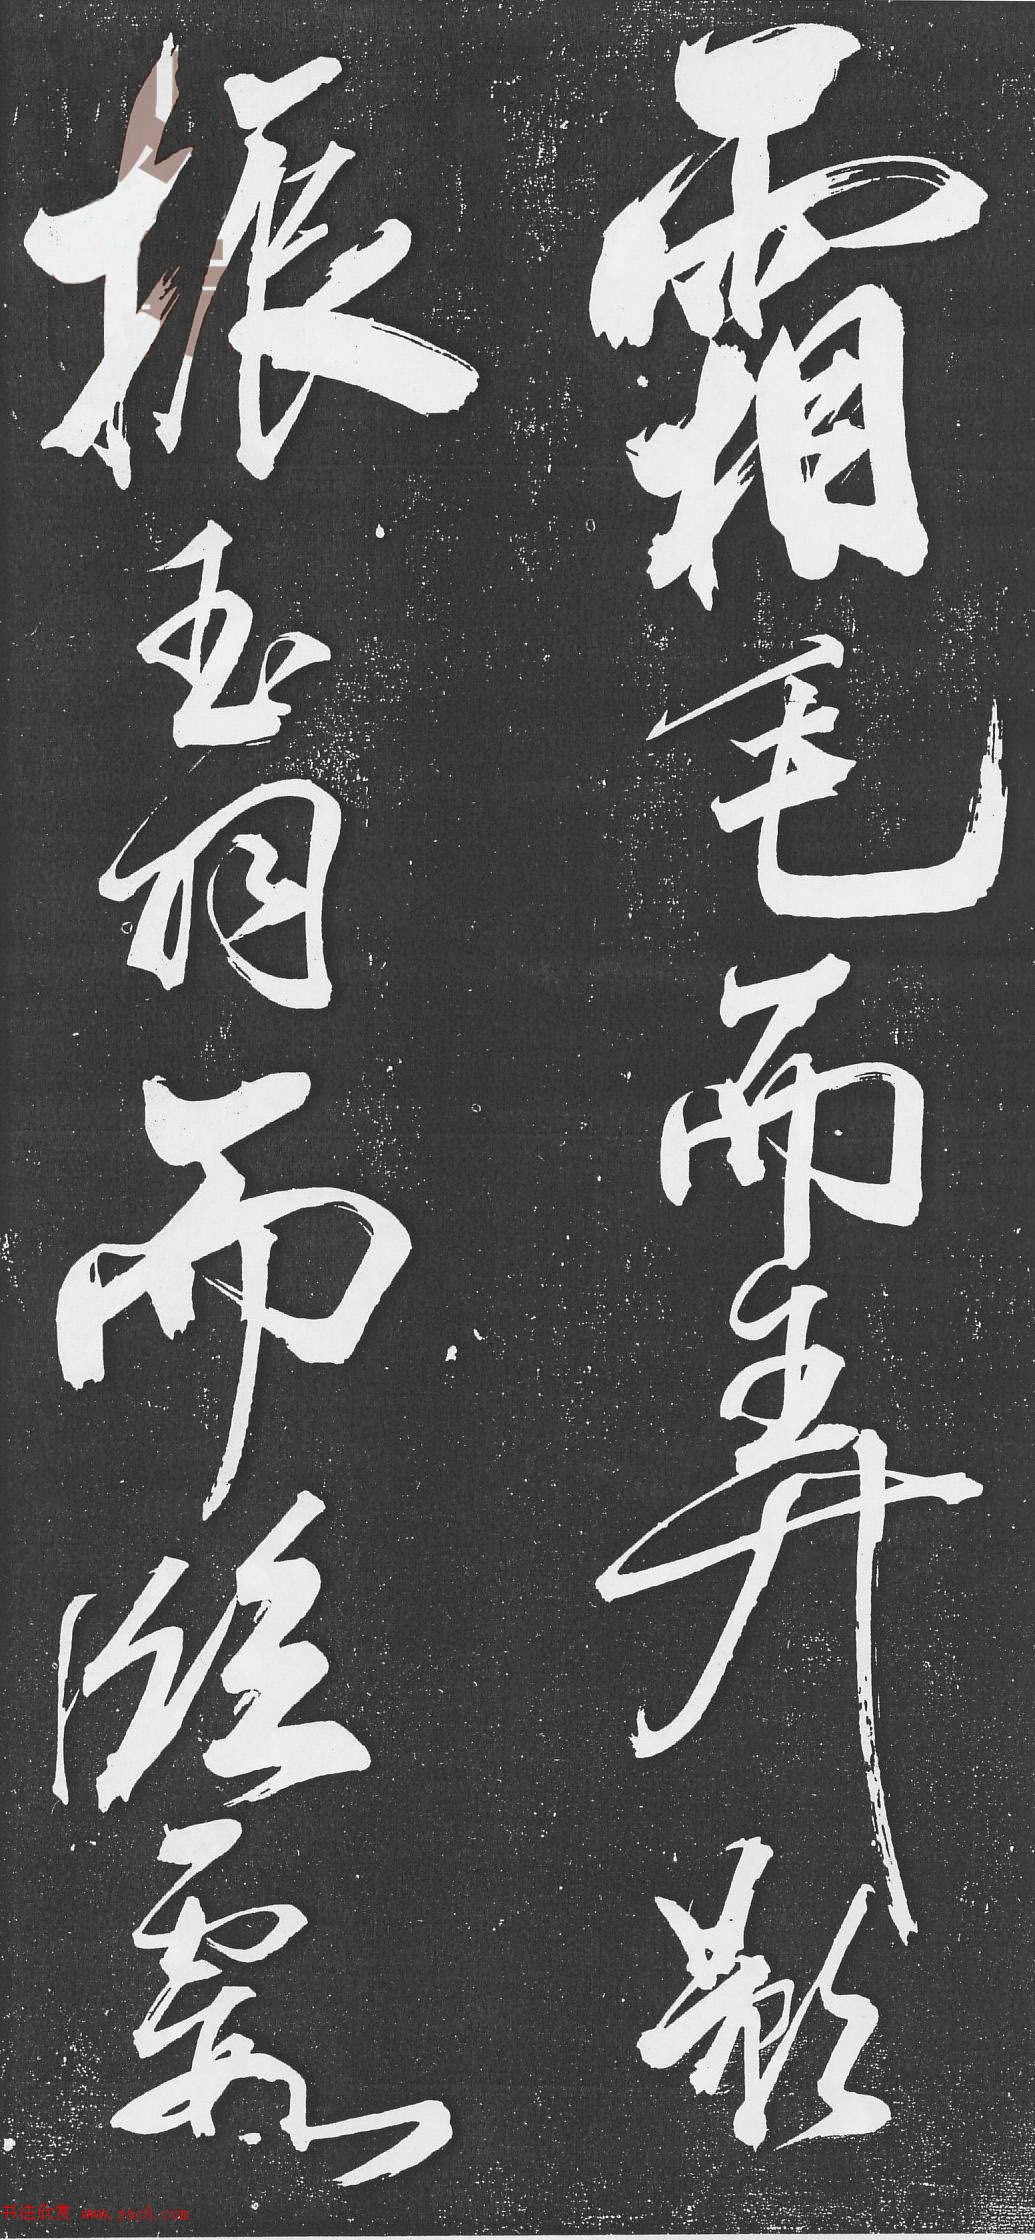 霜毛而弄影
振玉羽而臨霞
书法欣赏 www.yac8.com